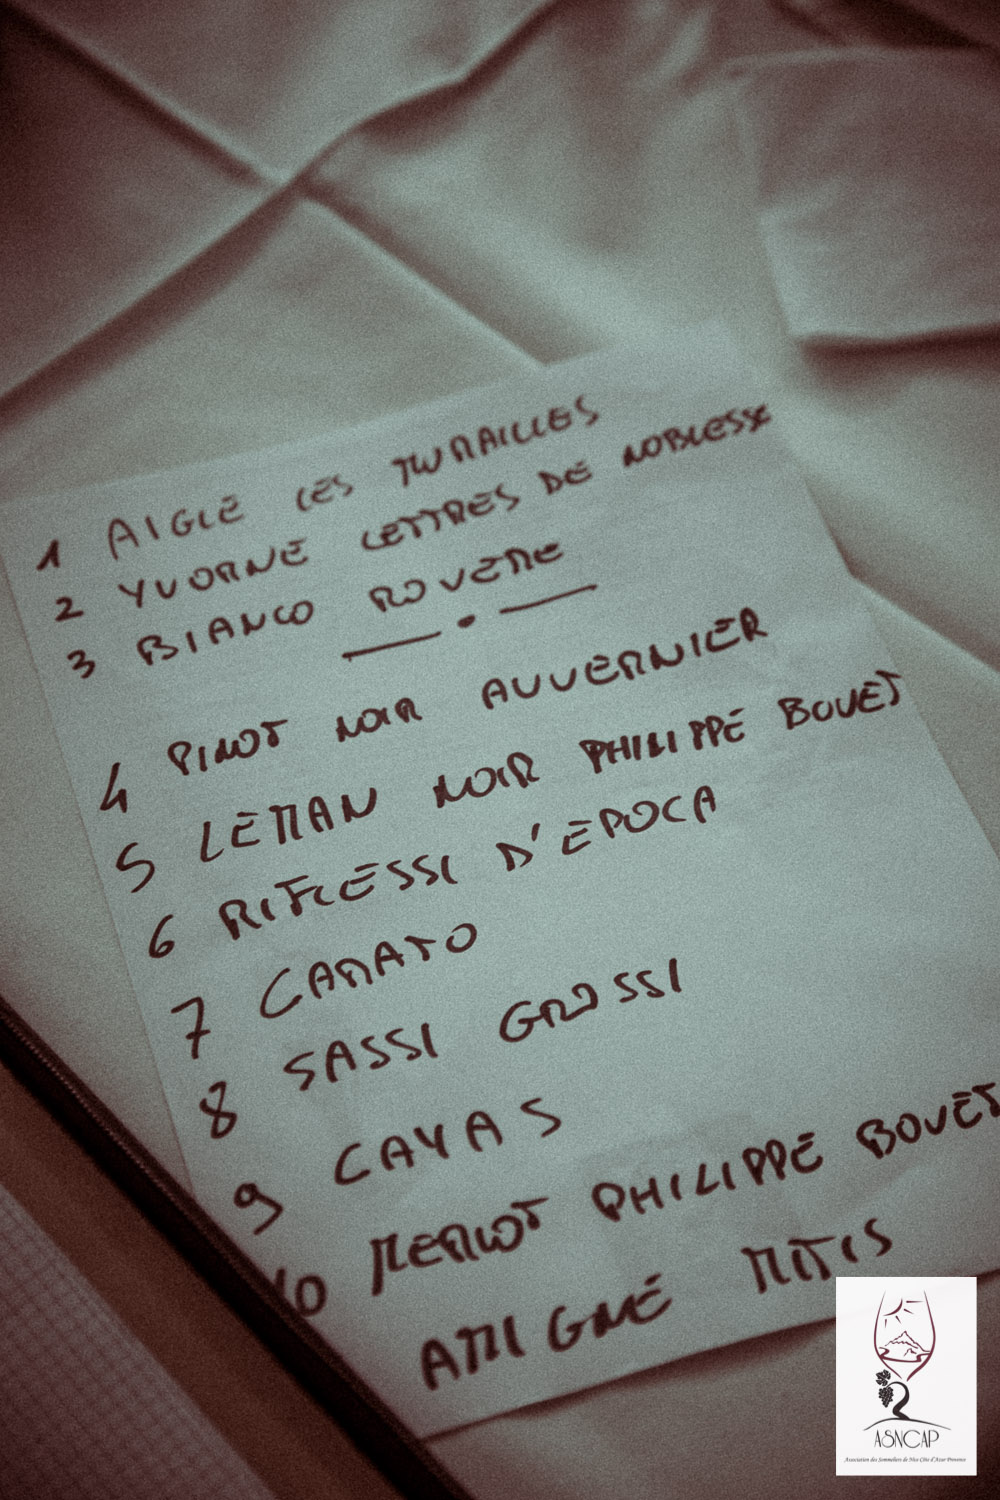 1 AIGLE LES MURAILLES
2 YVORNE LETTRES DE NOBLESSE
3 BIANCO ROVERE
4 PINOT NOIR AUVERNIER
5 LEMAN NOIR PHILIPPE BOVET
6 RIFLESSI D'EPOCA
7 CARATO
8 SASSI GROSSI
9 CAYAS
10 MERLOT PHILIPPE BOVET
AMIGNE MITIS
ASNCAP
Association des Sommeliers de Nice Côte d'Azur Provence